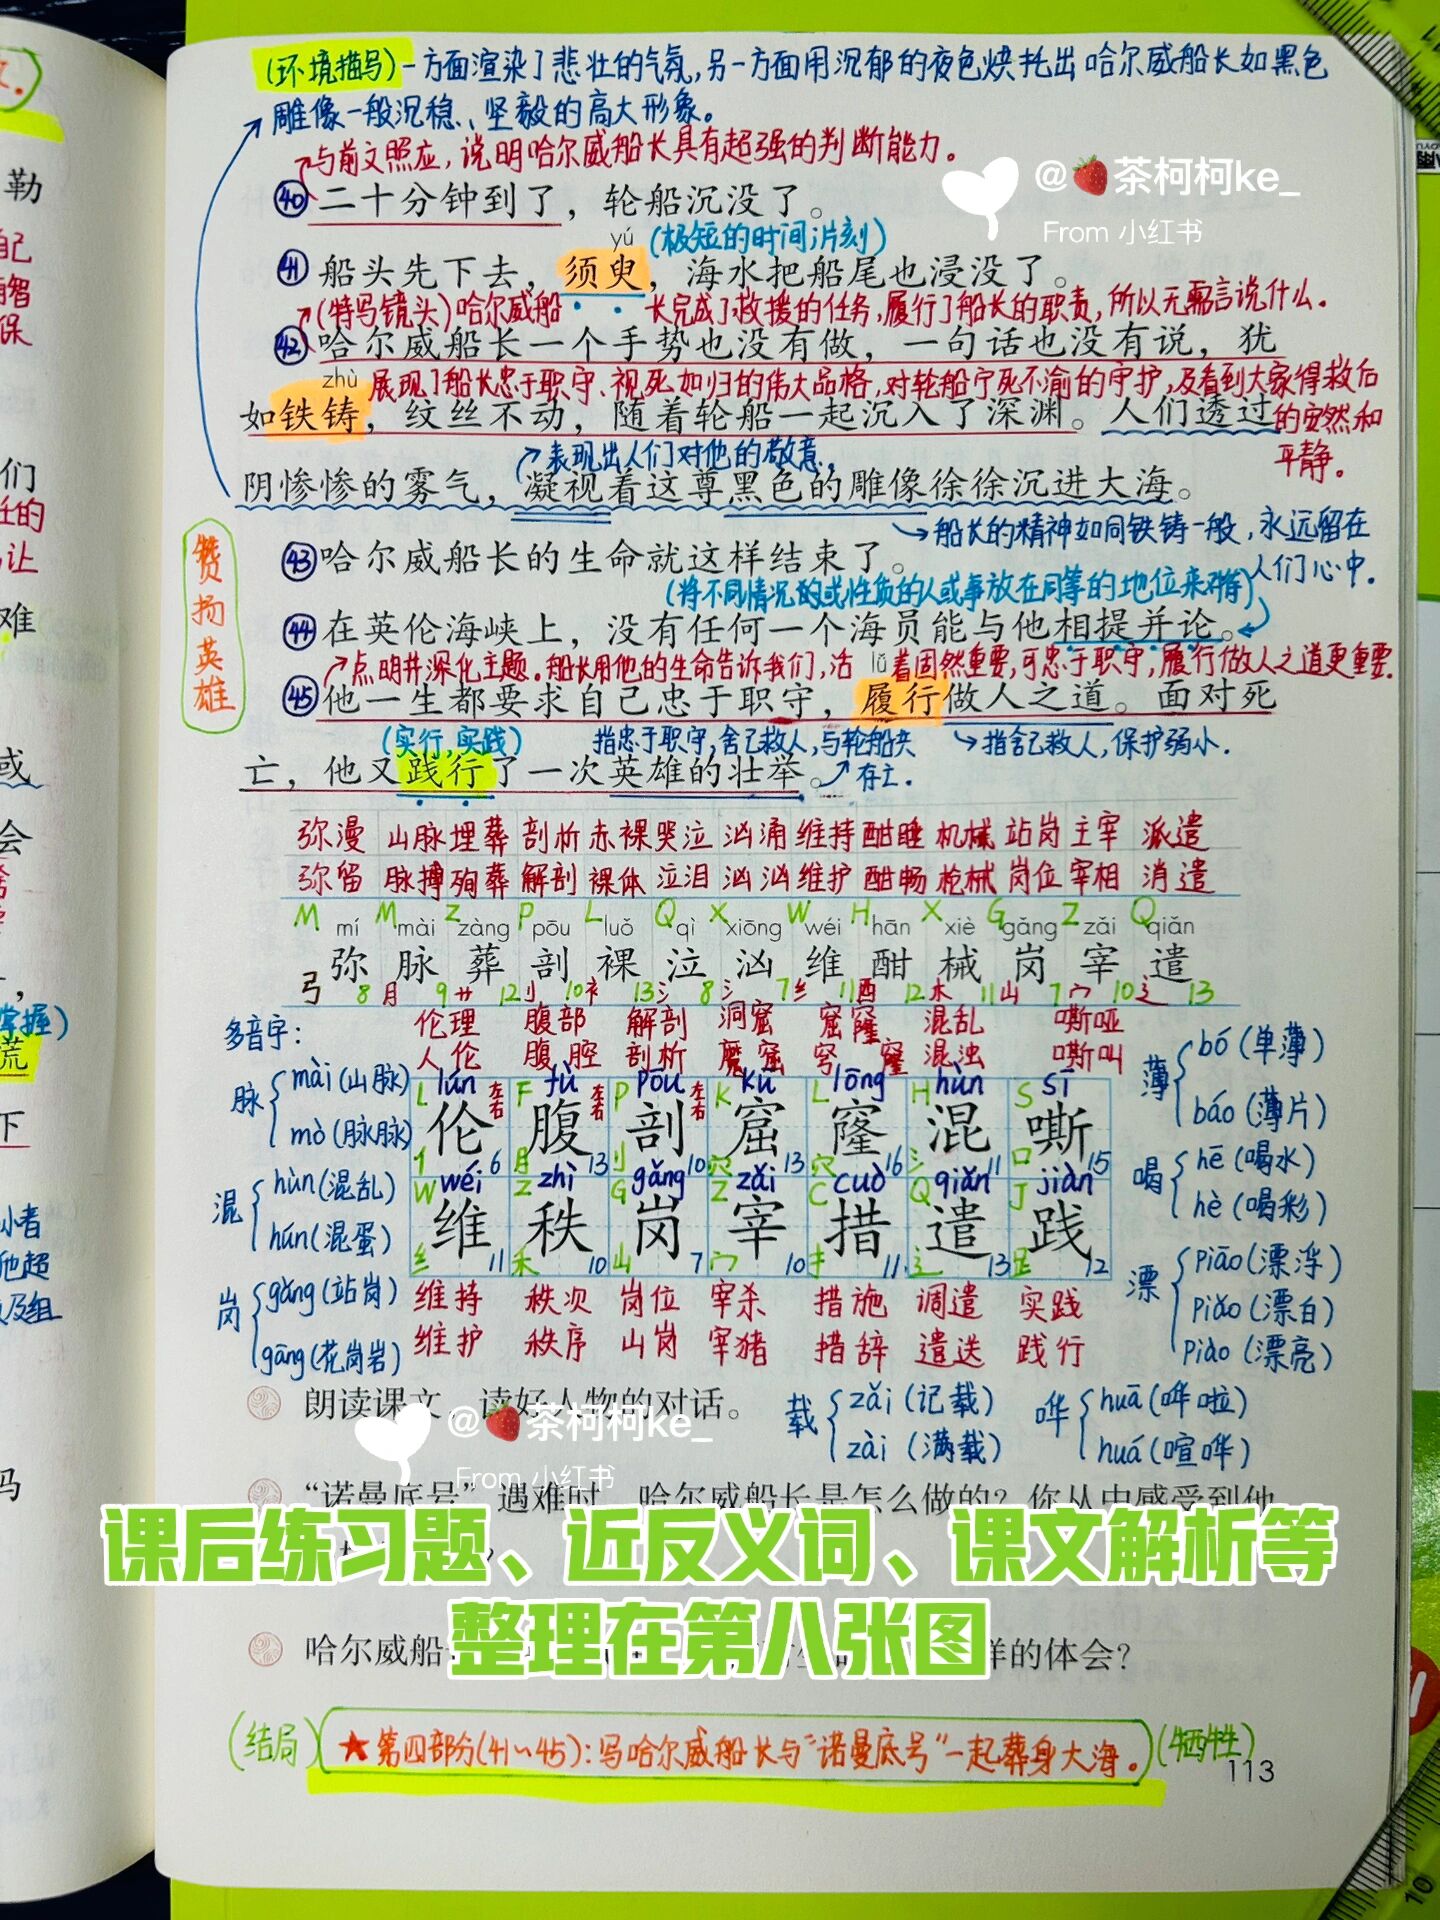 (环境描写)一方面渲染了悲壮的气氛,另一方面用沉郁的夜色烘托出哈尔威船长如黑色
雕像一般沉稳、坚毅的高大形象。
与前文照应,说明哈尔威船长具有超强的判断能力。
@🍓茶柯柯ke_
From 小红书
㊵二十分钟到了，轮船沉没了。
yú (极短的时间;片刻)
㊶船头先下去，须臾，海水把船尾也浸没了。
(特写镜头)哈尔威船长完成了救援的任务,履行了船长的职责,所以无需言说什么.
㊷哈尔威船长一个手势也没有做，一句话也没有说，犹
zhù 展现了船长忠于职守、视死如归的伟大品格,对轮船宁死不渝的守护,及看到大家得救后
的安然和
平静。
如铁铸，纹丝不动，随着轮船一起沉入了深渊。人们透过
表现出人们对他的敬意,
阴惨惨的雾气，凝视着这尊黑色的雕像徐徐沉进大海。
船长的精神如同铁铸一般,永远留在
人们心中.
赞扬英雄
㊸哈尔威船长的生命就这样结束了。
(将不同情况的或性质的人或事放在同等的地位来对待)
㊹在英伦海峡上，没有任何一个海员能与他相提并论。
点明并深化主题。船长用他的生命告诉我们,活 lǚ 着固然重要,可忠于职守,履行做人之道更重要.
㊺他一生都要求自己忠于职守，履行做人之道。面对死
(实行,实践) 指忠于职守,舍己救人,与轮船共
存亡. 指舍己救人,保护弱小.
亡，他又践行了一次英雄的壮举。
弥漫 山脉 埋葬 剖析 赤裸 哭泣 汹涌 维持 酣睡 机械 站岗 主宰 派遣
弥留 脉搏 殉葬 解剖 裸体 泣泪 汹汹 维护 酣畅 枪械 岗位 宰相 消遣
M M Z P L Q X W H X G Z Q
mí mài zàng pōu luǒ qì xiōng wéi hān xiè gǎng zǎi qiǎn
弥 脉 葬 剖 裸 泣 汹 维 酣 械 岗 宰 遣
弓 8 月 9 艹 12 刂 10 衤 13 氵 8 氵 7 纟 11 酉 12 木 11 山 7 宀 10 辶 13
多音字:
脉 mài(山脉)
mò(脉脉)
混 hùn(混乱)
hún(混蛋)
岗 gǎng(站岗)
gāng(花岗岩)
伦理 腹部 解剖 洞窟 窟窿 混乱 嘶哑
人伦 腹腔 剖析 魔窟 穹窿 混浊 嘶叫
L lún 左右 F fù 左右 P pōu 左右 K kū L lōng H hùn S sī
伦 腹 剖 窟 窿 混 嘶
亻 6 月 13 刂 10 穴 13 穴 16 氵 11 口 15
W wéi Z zhì G gǎng Z zǎi C cuò Q qiǎn J jiàn
维 秩 岗 宰 措 遣 践
纟 11 禾 10 山 7 宀 10 扌 11 辶 13 足 12
维持 秩次 岗位 宰杀 措施 调遣 实践
维护 秩序 山岗 宰猪 措辞 遣送 践行
薄 bó(单薄)
báo(薄片)
喝 hē(喝水)
hè(喝彩)
漂 piāo(漂浮)
piǎo(漂白)
piào(漂亮)
载 zǎi(记载)
zài(满载)
哗 huā(哗啦)
huá(喧哗)
朗读课文，读好人物的对话。
@🍓茶柯柯ke_
From 小红书
“诺曼底号”遇难时，哈尔威船长是怎么做的？你从中感受到他
课后练习题、近反义词、课文解析等
整理在第八张图
哈尔威船
样的体会？
(结局) ★第四部分(41~45):写哈尔威船长与“诺曼底号”一起葬身大海. (牺牲)
113